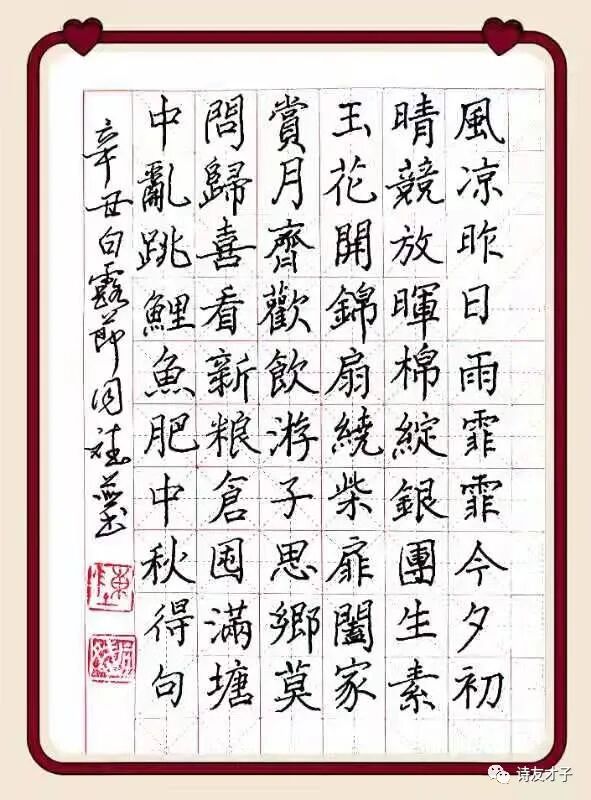 風凉昨日雨霏霏今夕初
晴競放暉棉綻銀團生素
玉花開錦扇繞柴扉闔家
賞月齊歡飲游子思鄉莫
問歸喜看新粮倉囤滿塘
中亂跳鯉魚肥中秋得句
辛丑白露節
诗友才子